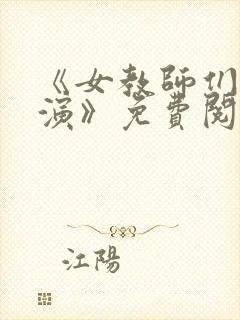 《女教師们
演》免費閱
江陽